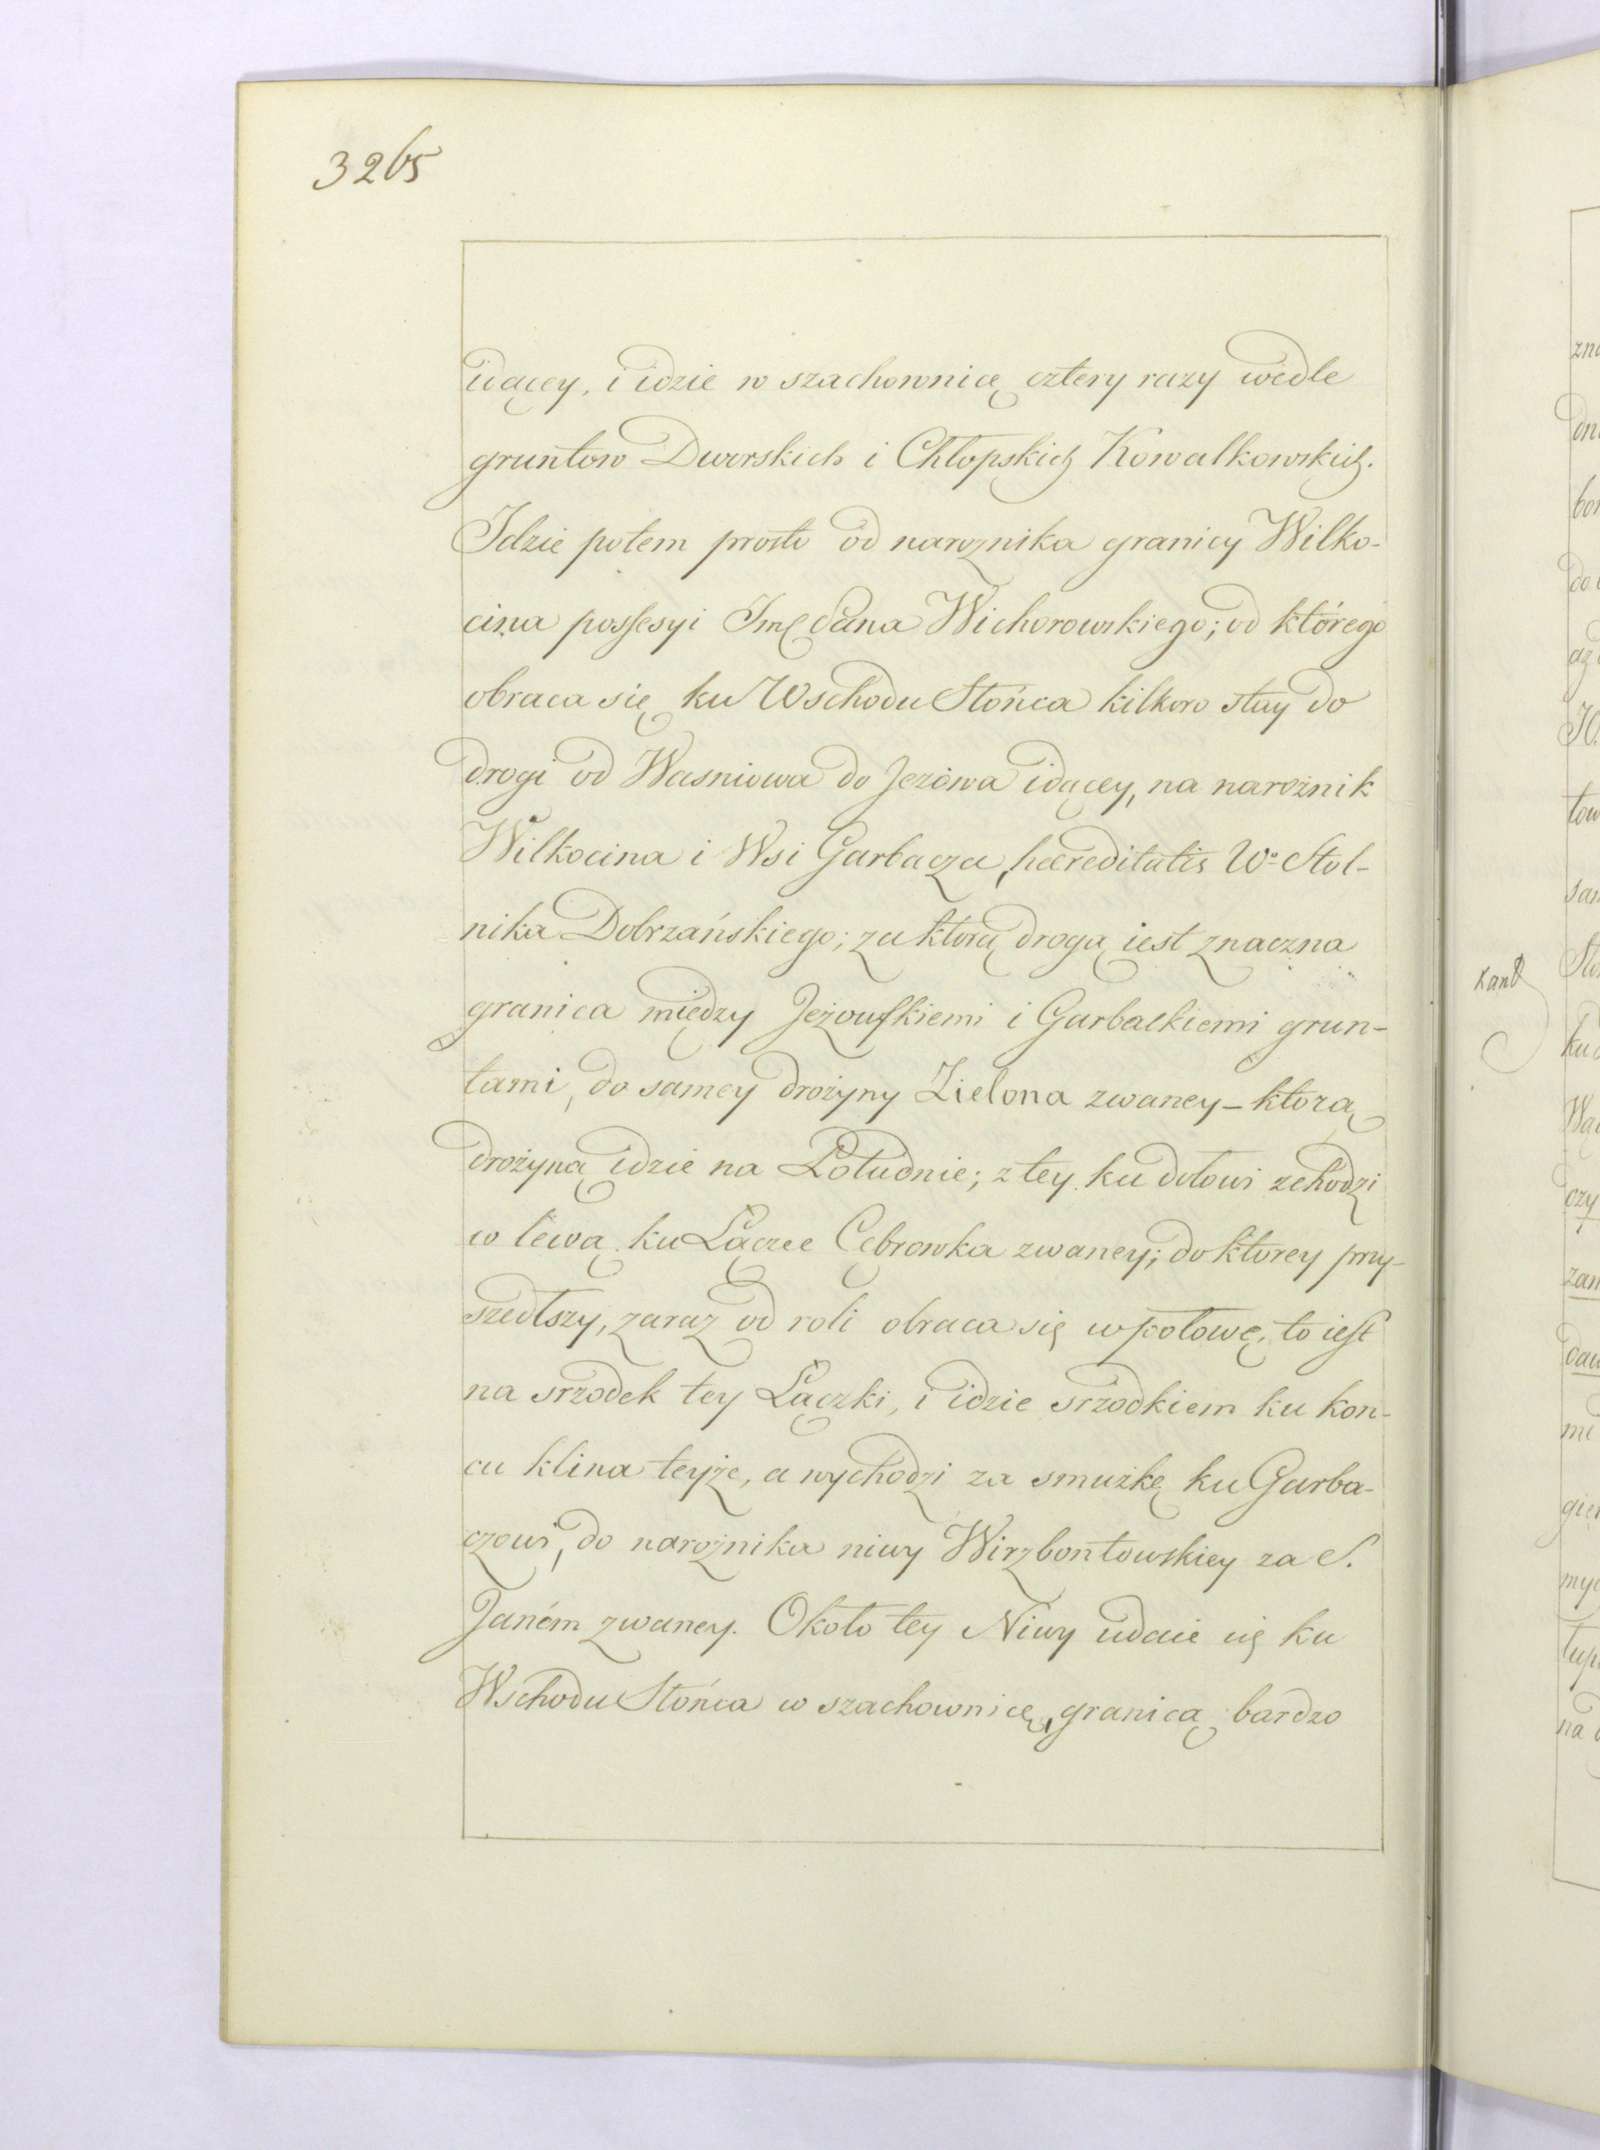 3265
idącey, i idzie w szachownicę cztery razy wedle
gruntow Dworskich i Chłopskich Kowalkowskich.
Jdzie potem prosto od narożnika granicy Wilko-
cina possesyi Jmć Pana Wichorowskiego; od którego
obraca się ku Wschodu Słońca kilkoro stay do
drogi od Wasniowa do Jeżowa idącey, na narożnik
Wilkocina i Wsi Garbacza, haereditatis Wo Stol-
nika Dobrzańskiego; za ktorą drogą iest znaczna
granica między Jeżowskiemi i Garbackiemi grun-
tami, do samey drożyny Zielona zwaney – ktorą
drożyną idzie na Południe; z tey ku dołowi zchodzi
w lewą ku Łączce Cębrowka zwaney; do ktorey przy-
szedłszy, zaraz od roli obraca się w połowę, to iest
na srzodek tey Łączki, i idzie srzodkiem ku kon-
cu klina teyże, a wychodzi za smużkę ku Garba-
czowi, do narożnika niwy Wirzbontowskiey za S.
Janém zwaney. Około tey Niwy udaie się ku
Wschodu Słońca w szachownicę, granicą bardzo